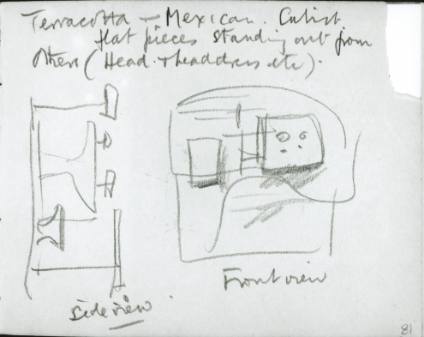 Terracotta — Mexican. Cubist.
flat pieces standing out from
others (Head & headdress etc).
side view
Front view
81